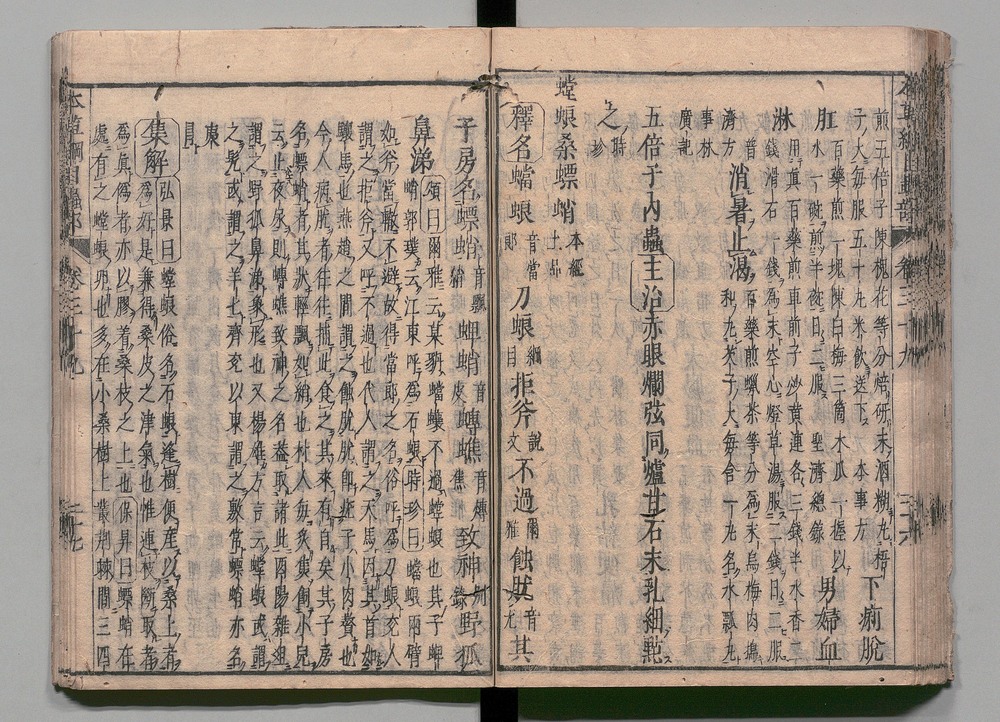 煎五倍子陳槐花等分焙研末酒糊丸梧
子大每服五十丸米飲送下 本事方 下痢脫
肛 百藥煎一塊陳白梅三箇木瓜一握以
水一碗煎半碗日二服 聖濟總錄 男婦血
淋 用真百藥煎車前子炒黃連各三錢半木香二
錢滑石一錢爲末空心燈草湯服二錢日二服
普濟方 消暑止渴 百藥煎蠟茶等分爲末烏梅肉搗
和丸芡子大每含一丸名水瓢丸
事林廣記
五倍子內蟲 主治 赤眼爛弦同爐甘石末乳細點
之 時珍
螳蜋桑螵蛸 本經上品
釋名 蟷蜋 音當郎 刀蜋 綱目 拒斧 說文 不過 爾雅 蝕肬 音尤 其
子房名螵蛸 音飄 蜱蛸 音皮 䗚蟭 音煿焦 致神 別錄 野狐
鼻涕 頌曰爾雅云莫貈蟷蠰不過螳蜋也其子蜱
蛸郭璞云江東呼爲石蜋時珍曰蟷蜋兩臂
如斧當轍不避故得當郎之名俗呼爲刀蜋兗人
謂之拒斧又呼不過也代人謂之天馬因其首如
驤馬也燕趙之間謂之蝕肬肬即疣子小肉贅也
今人病肬者往往捕此食之其來有自矣其子房
名螵蛸者其狀輕飄如綃也村人每炙焦飼小兒
云止夜尿則䗚蟭致神之名蓋取諸此酉陽雜俎
謂之野狐鼻涕象形也又楊雄方言云螳蜋或謂
之髦或謂之羊羊齊兗以東謂之敷常螵蛸亦名
集解 弘景曰螳蜋俗名石蜋逢樹便產以桑上者
爲好是兼得桑皮之津氣也惟連枝斷取者
爲真僞者亦以膠着桑枝之上也保昇曰螵蛸在
處有之螳蜋卵也多在小桑樹上叢荆棘間三四